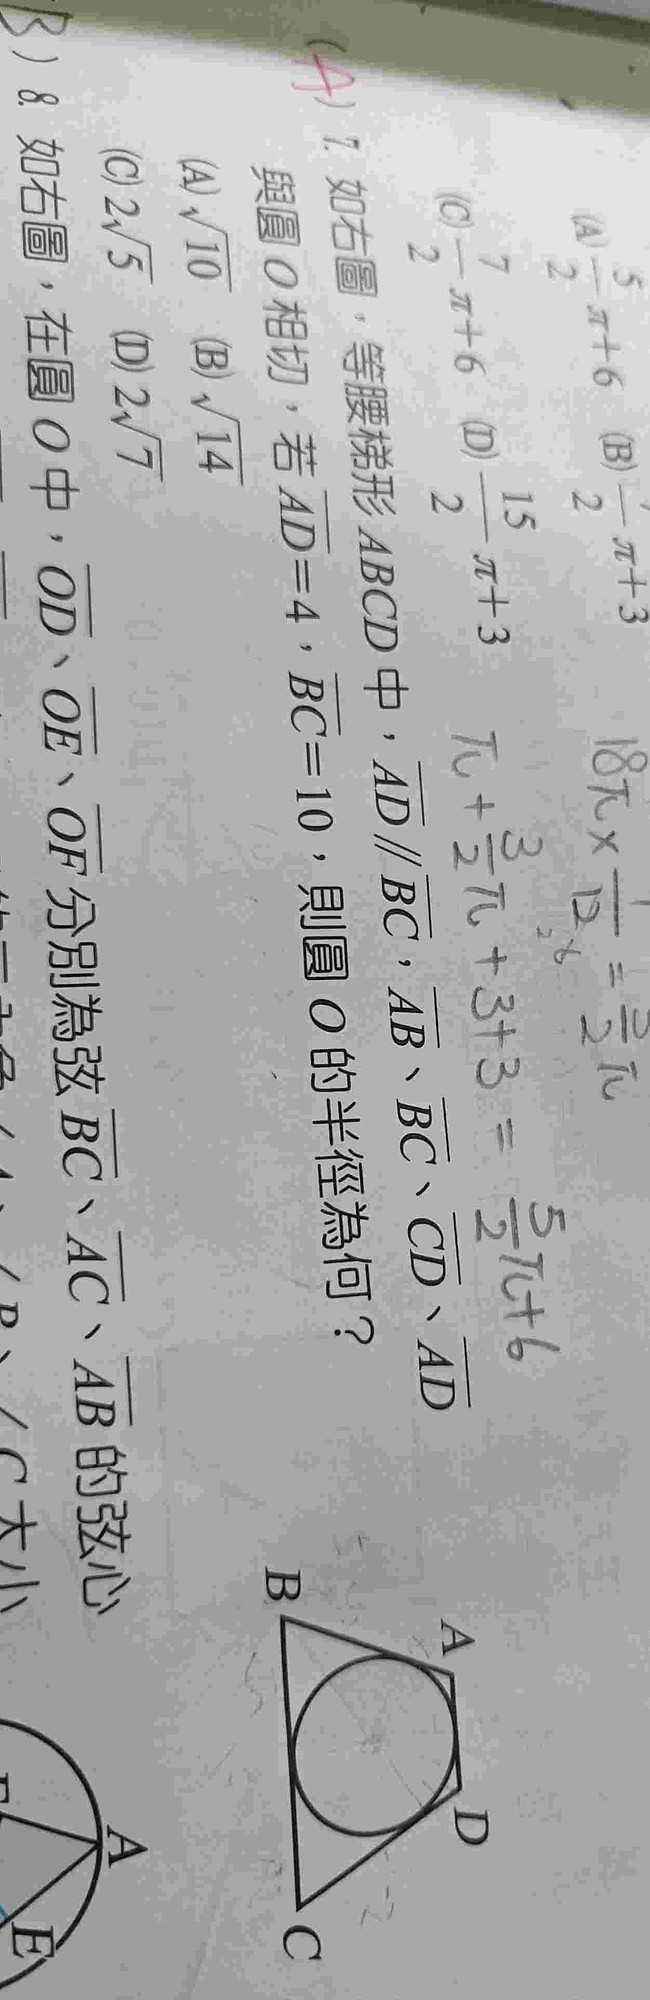 (A) 5/2 π+6 (B) /2 π+3
18π× 1/12 = 3/2 π
(C) 7/2 π+6 (D) 15/2 π+3
π + 3/2 π + 3+3 = 5/2 π+6
(A) 7. 如右圖，等腰梯形ABCD中，AD // BC，AB、BC、CD、AD
與圓O相切，若AD=4，BC=10，則圓O的半徑為何？
(A)√10 (B)√14
(C)2√5 (D)2√7
A
D
B
C
B) 8. 如右圖，在圓O中，OD、OE、OF分別為弦BC、AC、AB的弦心
A
E
大小